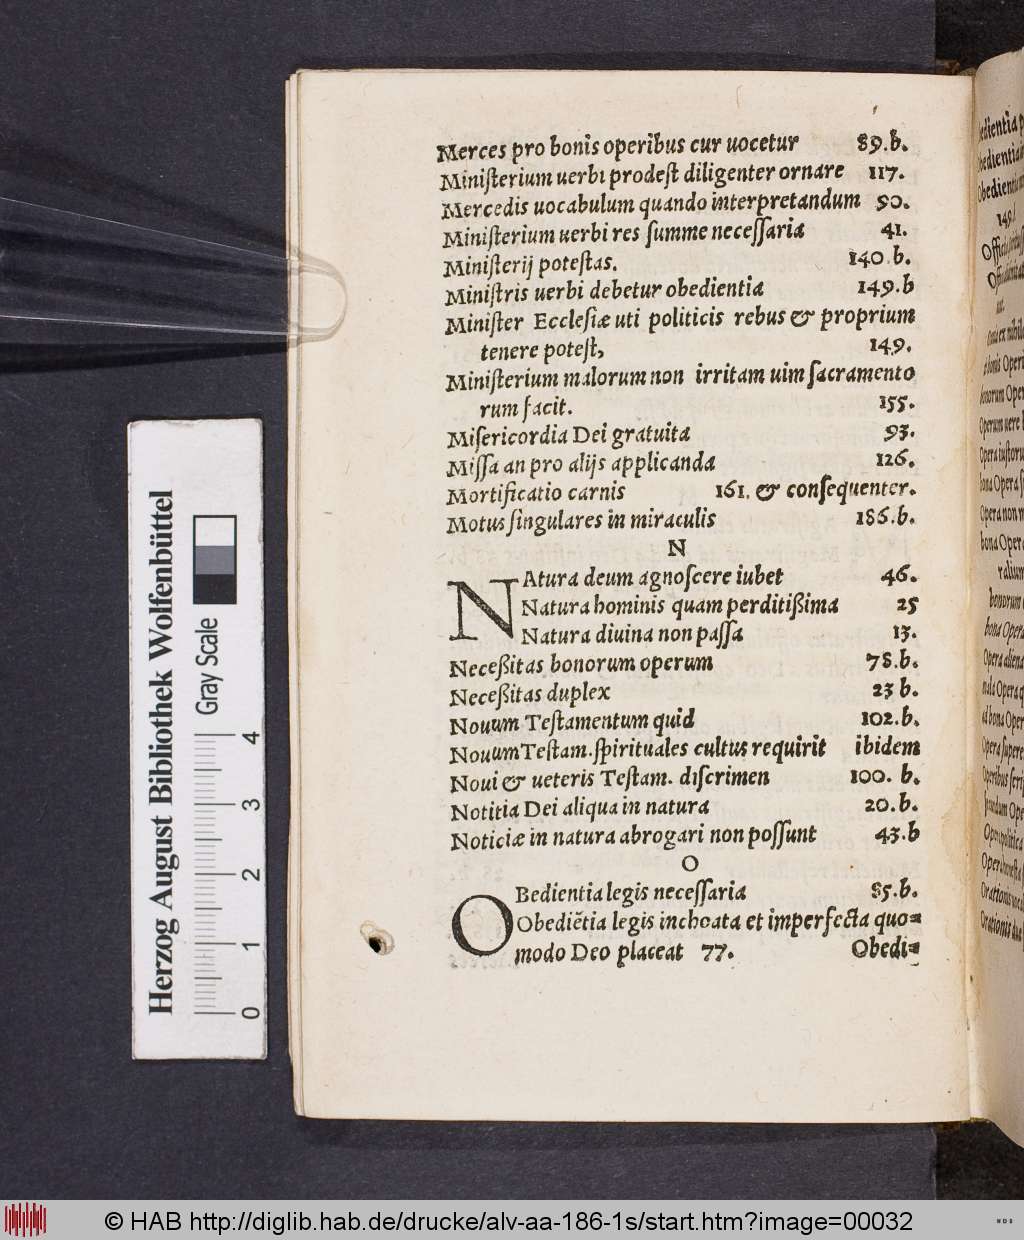 Merces pro bonis operibus cur uocetur 89.b.
Miniſterium uerbi prodeſt diligenter ornare 117.
Mercedis uocabulum quando interpretandum 90.
Miniſterium uerbi res ſumme neceſſaria 41.
Miniſterij poteſtas. 140 b.
Miniſtris uerbi debetur obedientia 149.b
Miniſter Eccleſiæ uti politicis rebus & proprium
tenere poteſt, 149.
Miniſterium malorum non irritam uim ſacramento
rum facit. 155.
Miſericordia Dei gratuita 93.
Miſſa an pro alijs applicanda 126.
Mortificatio carnis 161. & conſequenter.
Motus ſingulares in miraculis 186.b.
N
NAtura deum agnoſcere iubet 46.
Natura hominis quam perditißima 25
Natura diuina non paſſa 13.
Neceßitas bonorum operum 78.b.
Neceßitas duplex 23 b.
Nouum Teſtamentum quid 102.b.
Nouum Teſtam. ſpirituales cultus requirit ibidem
Noui & ueteris Teſtam. diſcrimen 100. b.
Notitia Dei aliqua in natura 20.b.
Noticiæ in natura abrogari non poſſunt 43.b
O
OBedientia legis neceſſaria 85.b.
Obediẽtia legis inchoata et imperfecta quo=
modo Deo placeat 77. Obedi=
Herzog August Bibliothek Wolfenbüttel
Gray Scale
0 1 2 3 4
© HAB http://diglib.hab.de/drucke/alv-aa-186-1s/start.htm?image=00032